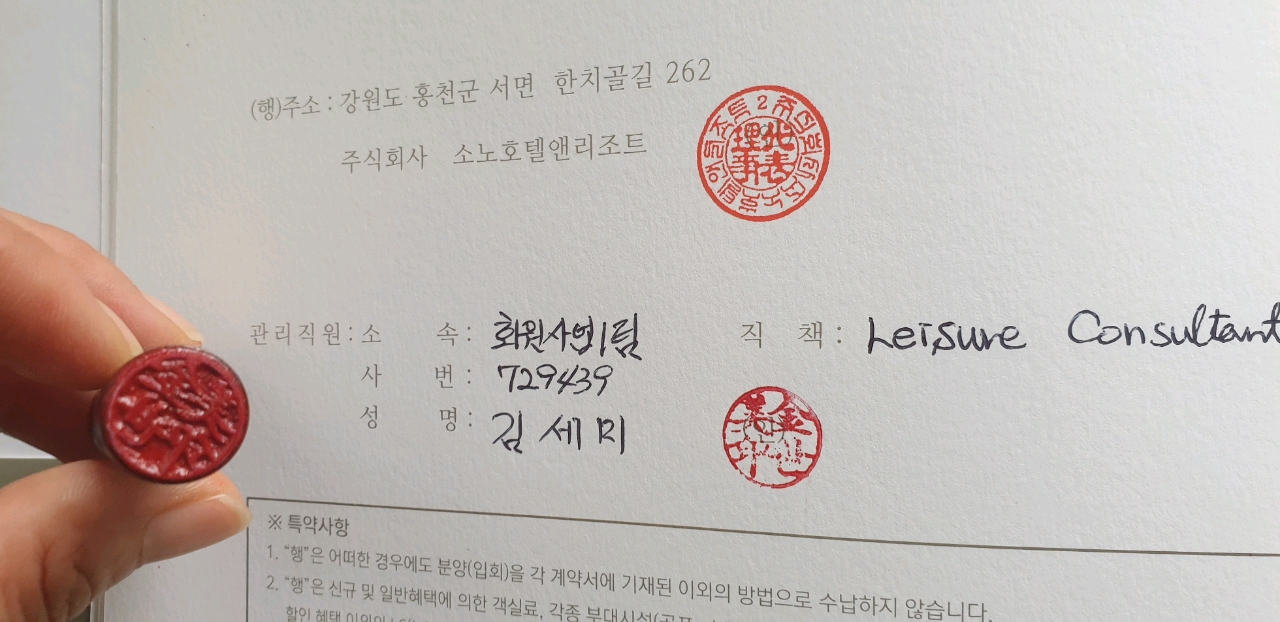 (행)주소 : 강원도 홍천군 서면 한치골길 262
주식회사 소노호텔앤리조트
2 주식회사소노호텔앤리조트
代表
理事
관리직원 : 소 속 : 회원사업1팀
직 책 : Leisure Consultant
사 번 : 729439
성 명 : 김세미
※ 특약사항
1. “행”은 어떠한 경우에도 분양(입회)을 각 계약서에 기재된 이외의 방법으로 수납하지 않습니다.
2. “행”은 신규 및 일반혜택에 의한 객실료, 각종 부대시설(골프
할인 혜택 이외의